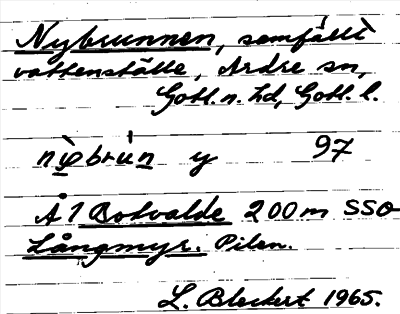 Nybrunnen, samfällt
vattenställe, Ardre sn,
Gotl. n. hd, Gotl. l.
brun y 97
Å 1 Botvalde 200 m SSO
Långmyr. Pilen.
L. Bleckert 1965.